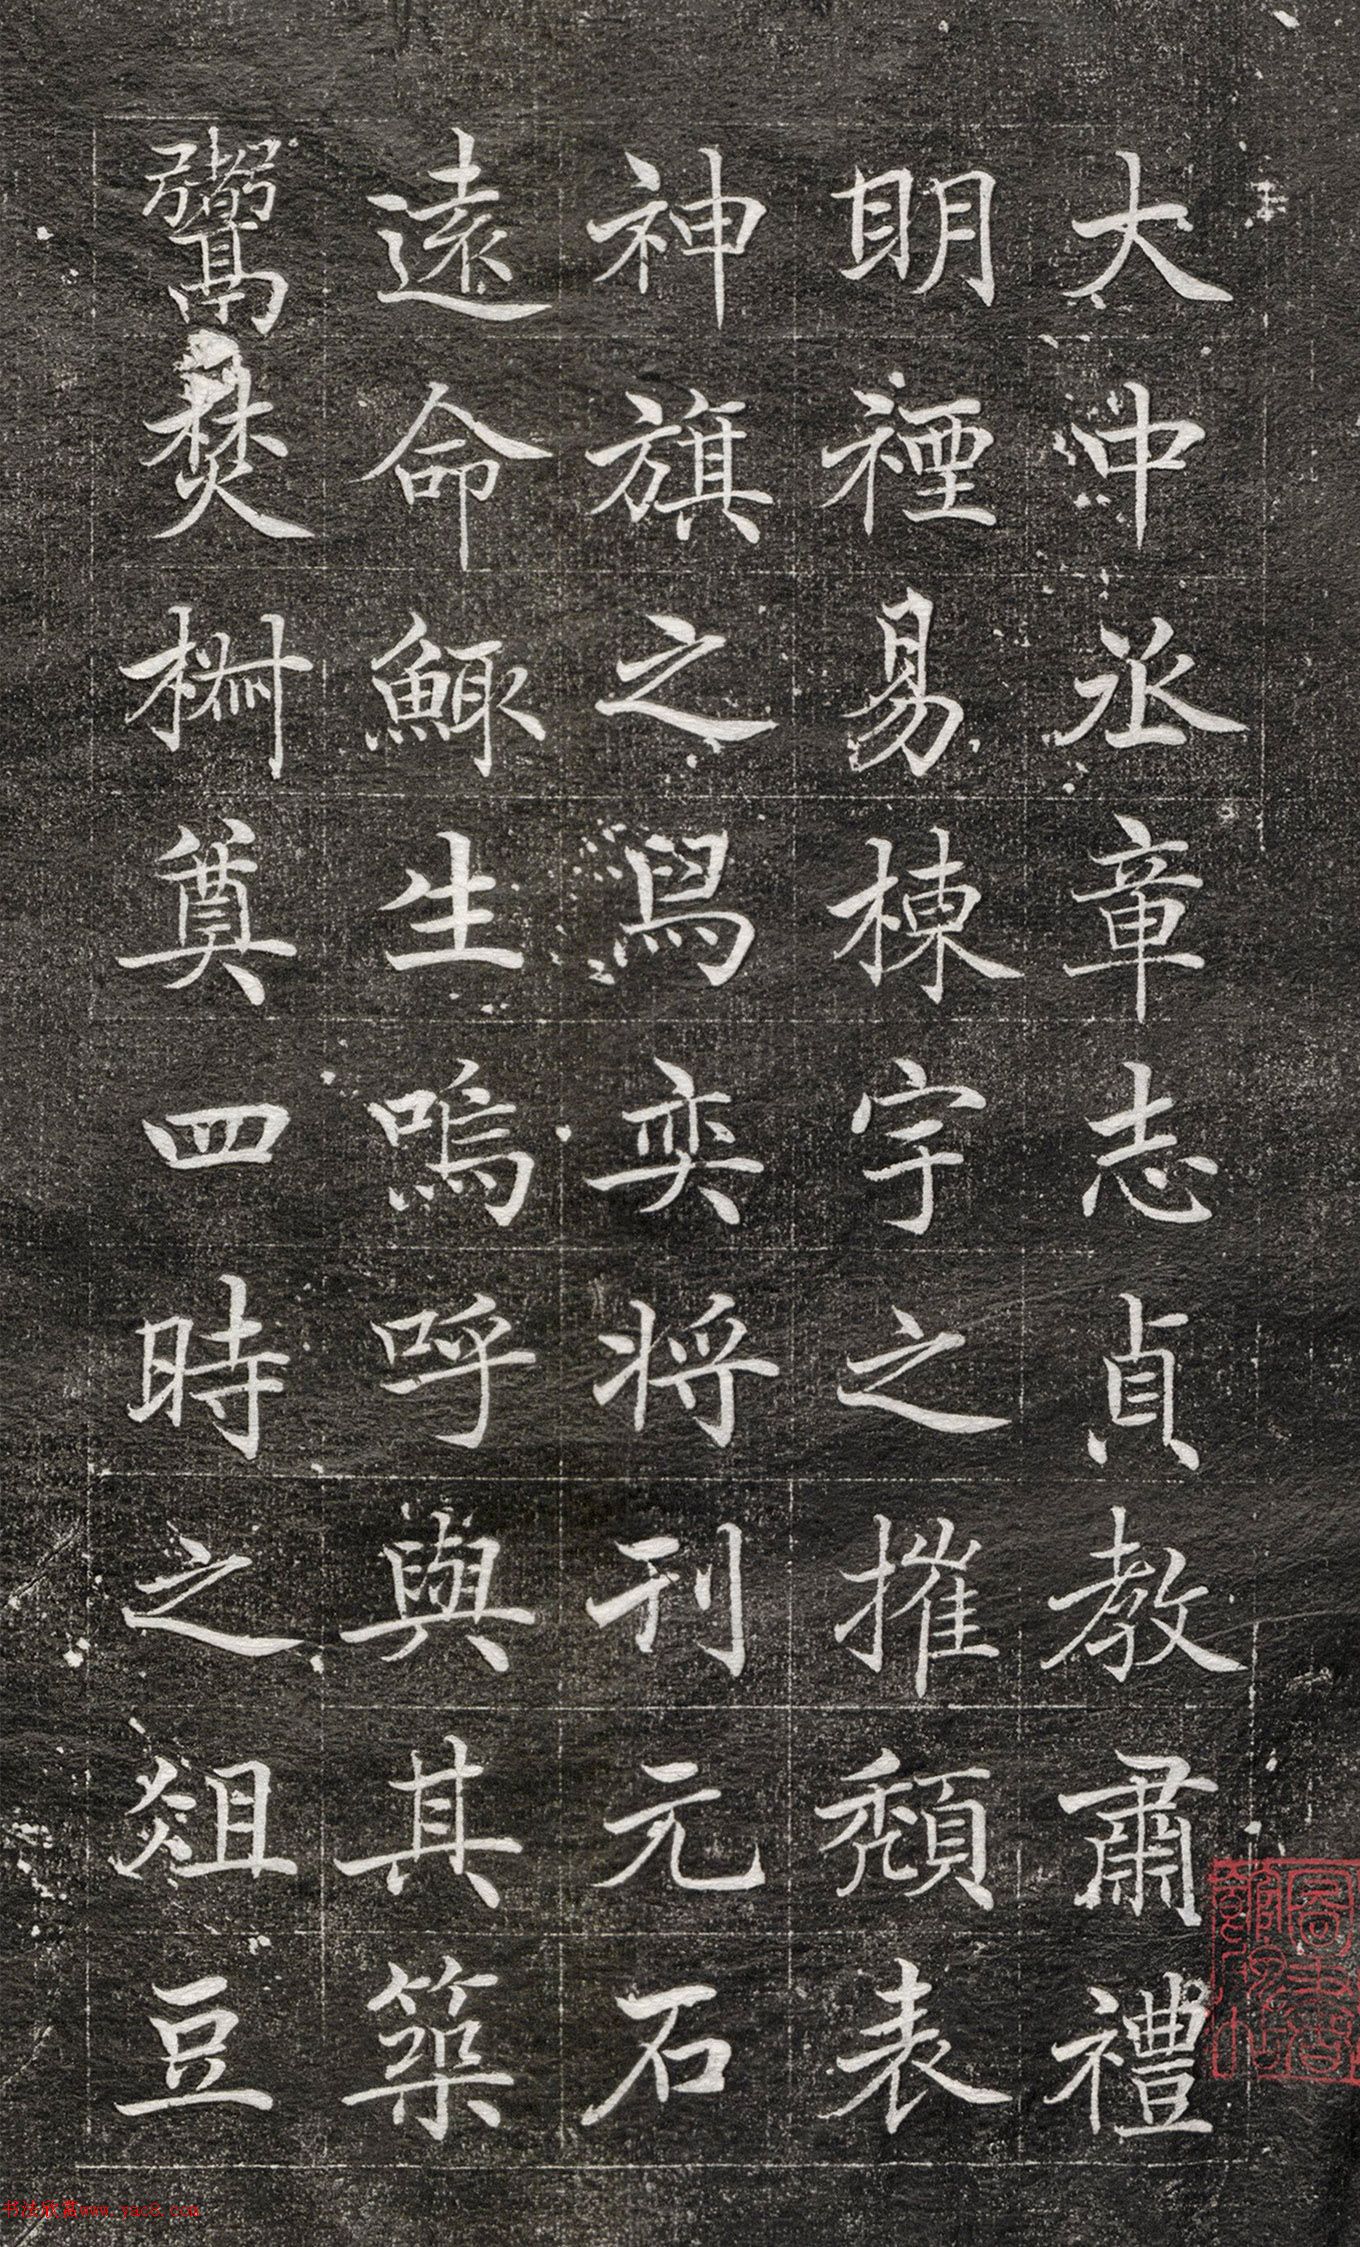 大中丞章志貞教肅禮
明禋易棟宇之摧頹表
神旗之舄奕将刊元石
遠命鯫生嗚呼與其築
鬻焚栅奠四時之俎豆
书法欣赏www.yac8.com